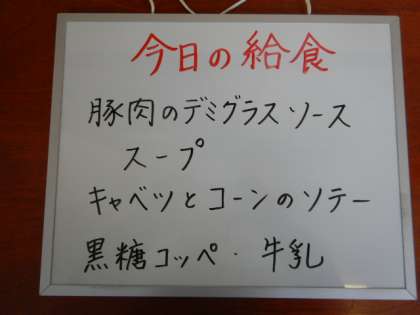 今日の給食
豚肉のデミグラスソース
スープ
キャベツとコーンのソテー
黒糖コッペ・牛乳